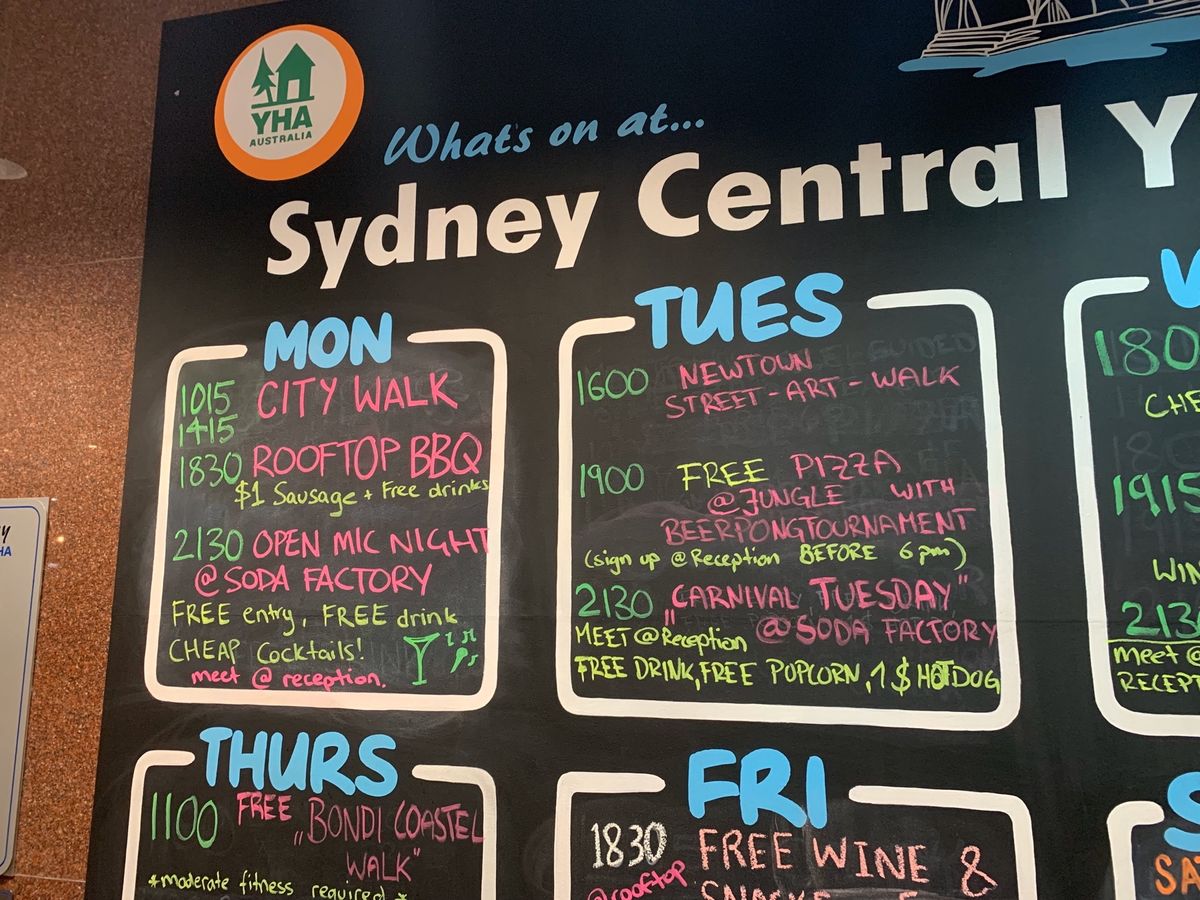 YHA
AUSTRALIA
What's on at...
Sydney Central Y
MON
1015 CITY WALK
1415
1830 ROOFTOP BBQ
$1 Sausage + Free drinks
2130 OPEN MIC NIGHT
@ SODA FACTORY
FREE entry, FREE drink
CHEAP Cocktails!
meet @ reception.
TUES
1600 NEWTOWN
STREET-ART-WALK
1900 FREE PIZZA
@ JUNGLE WITH
BEERPONGTOURNAMENT
(sign up @Reception BEFORE 6 pm)
2130 „CARNIVAL TUESDAY"
MEET @Reception @ SODA FACTORY
FREE DRINK, FREE POPCORN, 1 $ HOTDOG
W
180
CHE
1915
WIN
213
meet @
RECEPT
THURS
1100 FREE „BONDI COASTEL
WALK"
*moderate fitness required*
FRI
1830 FREE WINE &
@rooftop
S
SA
HA